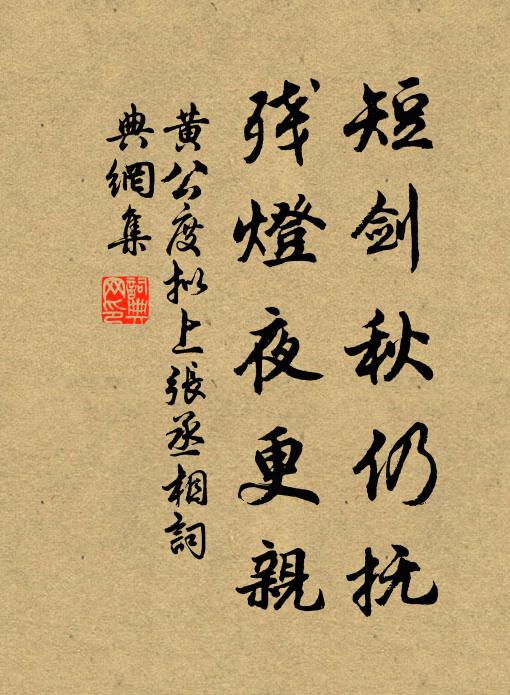 短剑秋仍抚
残燈夜更親
黄公度拟上張丞相詞
典網集
詞典网印